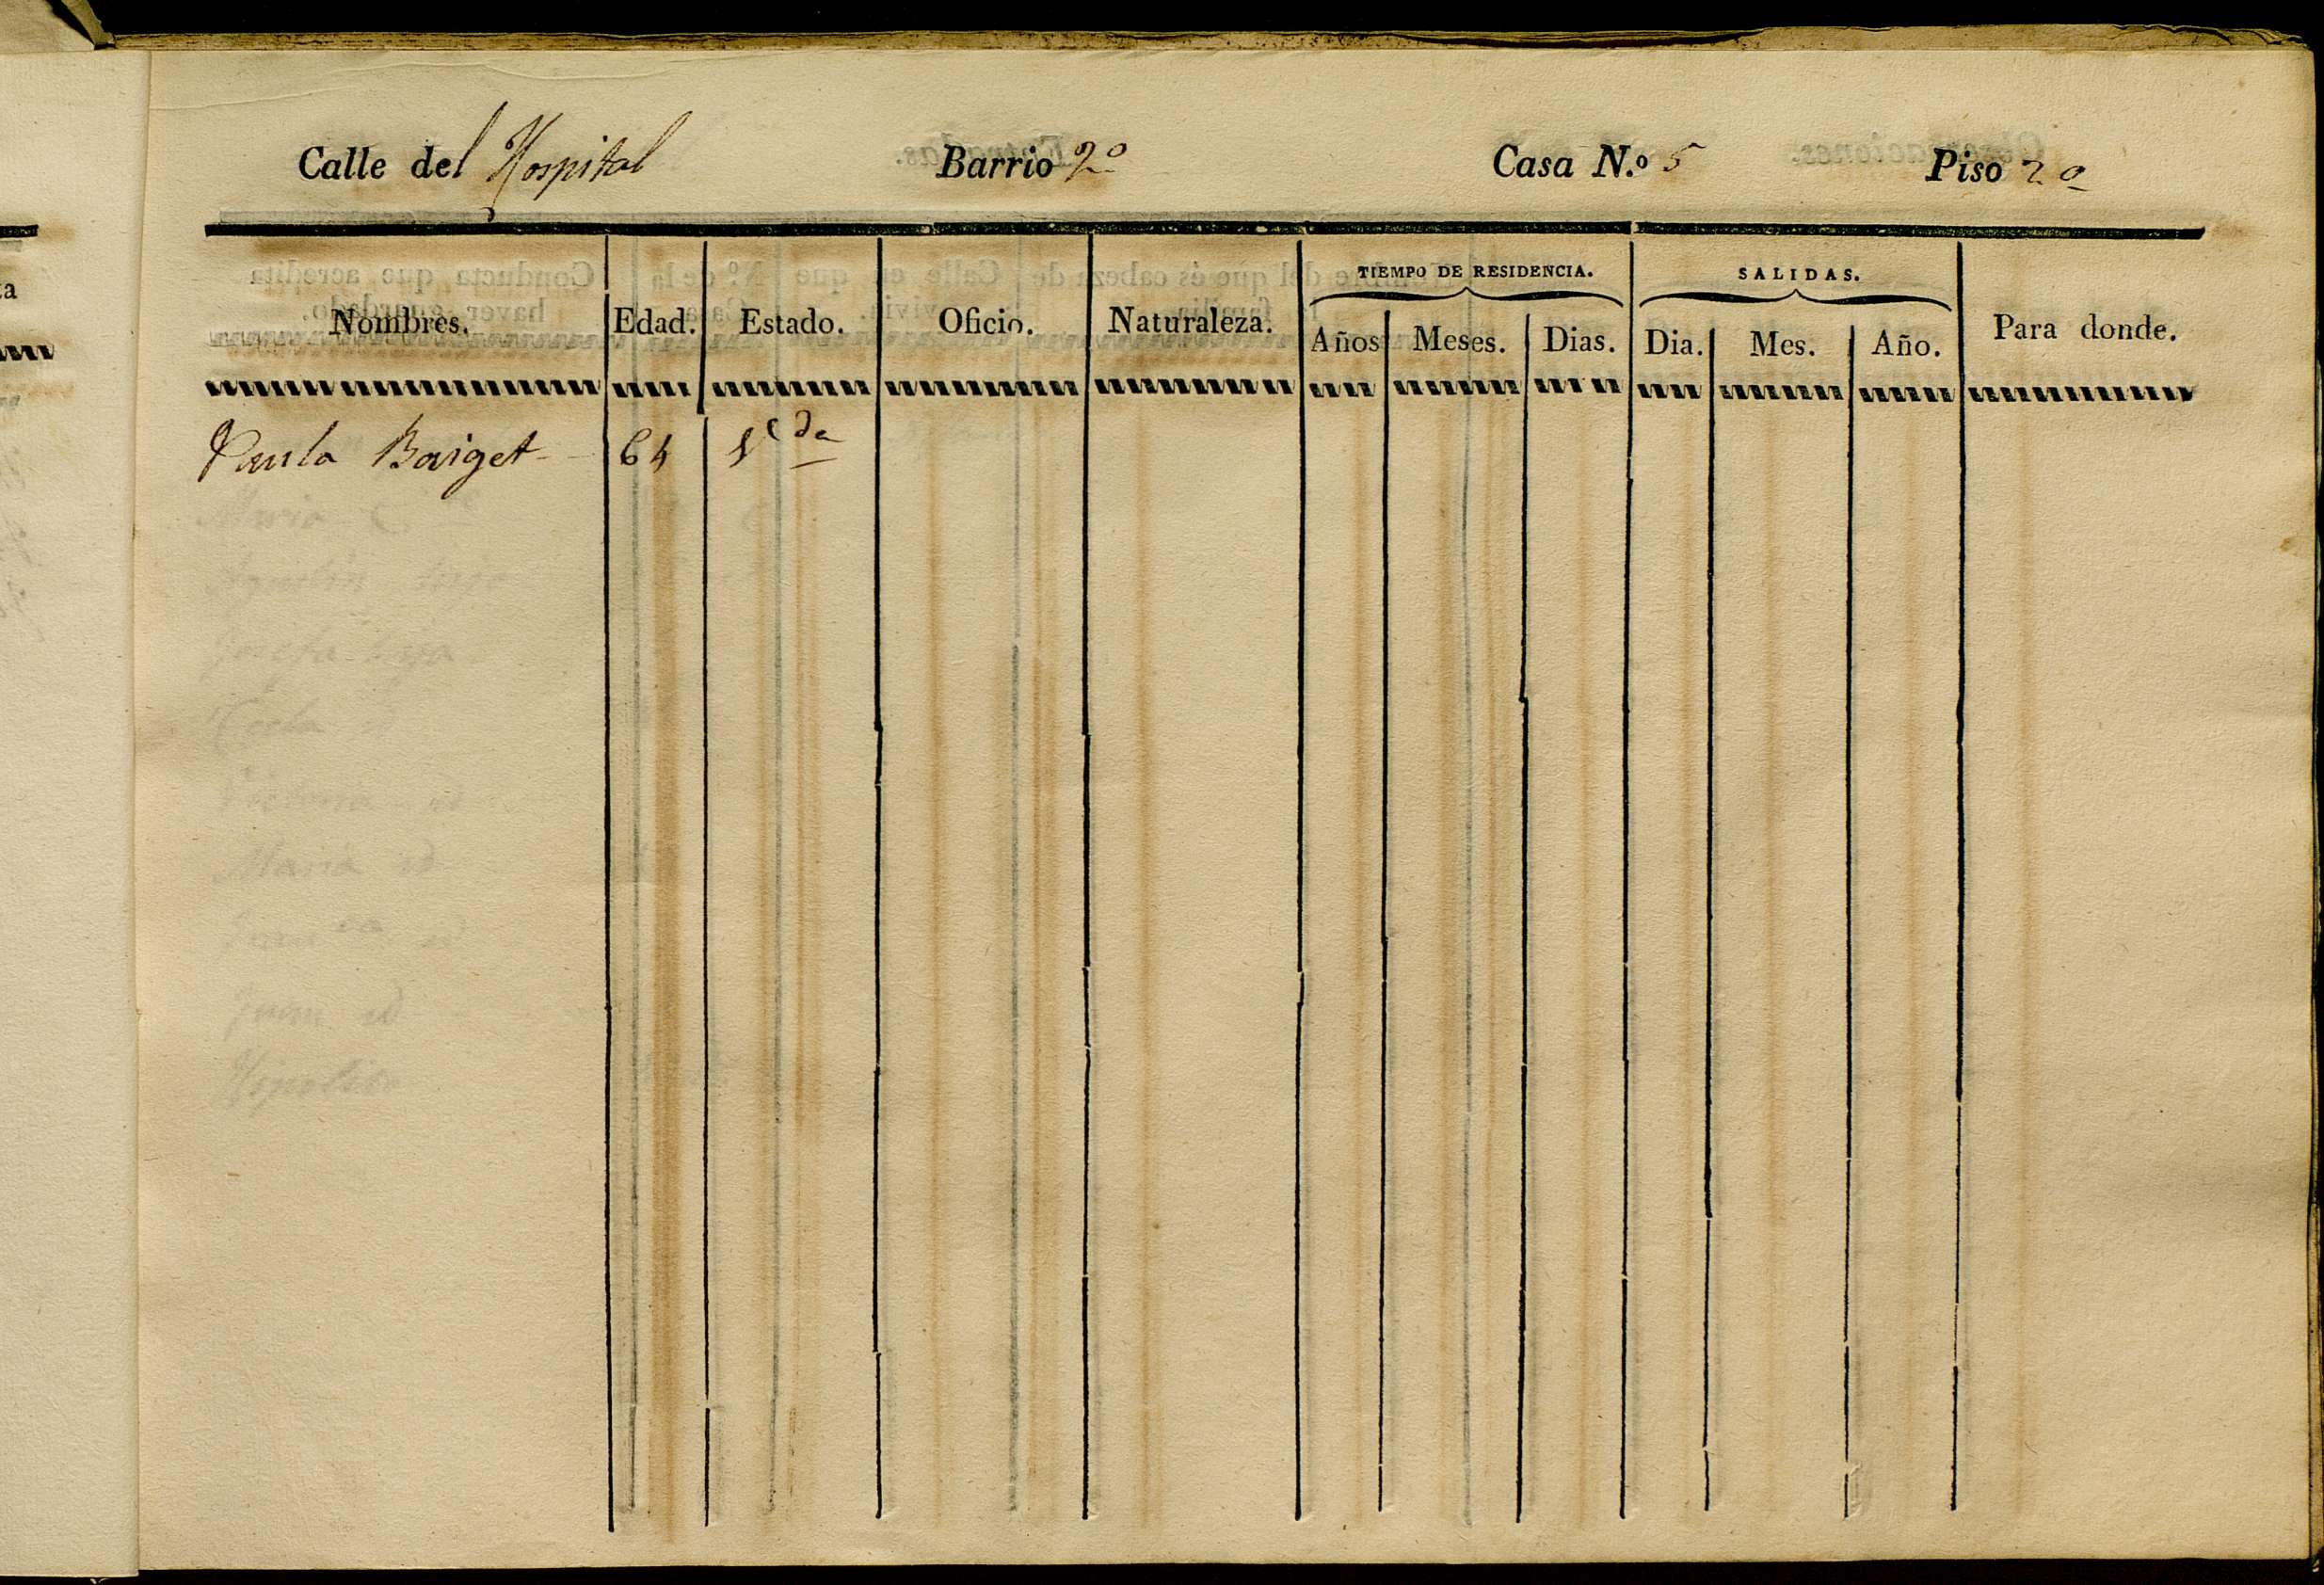 Calle del Hospital Barrio 2º Casa N.º 5 Piso 2º
TIEMPO DE RESIDENCIA. SALIDAS.
Nombres. Edad. Estado. Oficio. Naturaleza. Años Meses. Dias. Dia. Mes. Año. Para donde.
Paula Baiget 64